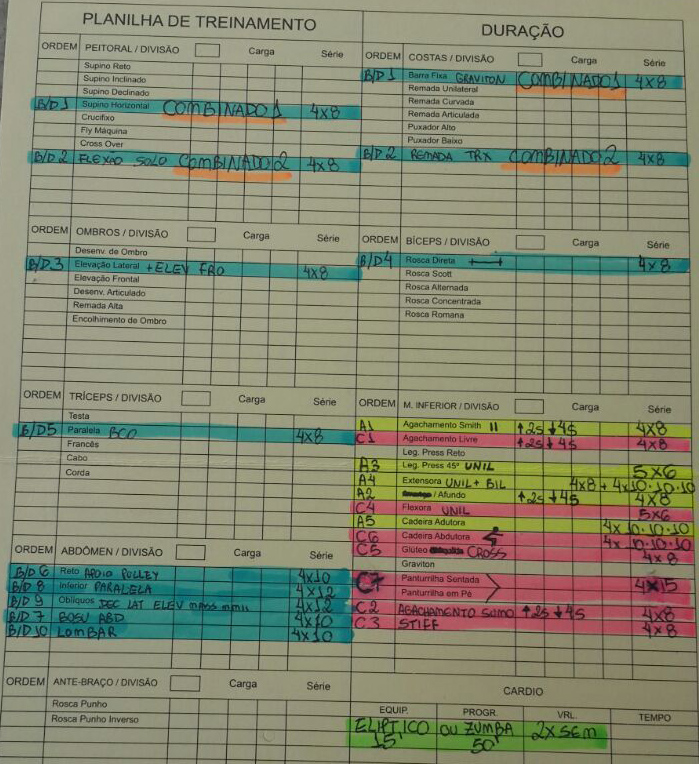 PLANILHA DE TREINAMENTO
DURAÇÃO
ORDEM PEITORAL / DIVISÃO Carga Série
Supino Reto
Supino Inclinado
Supino Declinado
B/D 1 Supino Horizontal COMBINADO 1 4x8
Crucifixo
Fly Máquina
Cross Over
B/D 2 FLEXÃO SOLO COMBINADO 2 4x8
ORDEM COSTAS / DIVISÃO Carga Série
B/D 1 Barra Fixa GRAVITON COMBINADO 1 4x8
Remada Unilateral
Remada Curvada
Remada Articulada
Puxador Alto
Puxador Baixo
B/D 2 REMADA TRX COMBINADO 2 4x8
ORDEM OMBROS / DIVISÃO Carga Série
Desenv. de Ombro
B/D 3 Elevação Lateral + ELEV FRO 4x8
Elevação Frontal
Desenv. Articulado
Remada Alta
Encolhimento de Ombro
ORDEM BÍCEPS / DIVISÃO Carga Série
B/D 4 Rosca Direta 4x8
Rosca Scott
Rosca Alternada
Rosca Concentrada
Rosca Romana
ORDEM TRÍCEPS / DIVISÃO Carga Série
Testa
B/D 5 Paralela BCO 4x8
Francês
Cabo
Corda
ORDEM M. INFERIOR / DIVISÃO Carga Série
A1 Agachamento Smith II ↑2s ↓4s 4x8
C1 Agachamento Livre ↑2s ↓4s 4x8
Leg. Press Reto
A3 Leg. Press 45° UNIL 5x6
A4 Extensora UNIL + BIL 4x8 + 4x10.10.10
A2 / Afundo ↑2s ↓4s 4x8
C4 Flexora UNIL 5x6
A5 Cadeira Adutora 4x10.10.10
C6 Cadeira Abdutora 4x10.10.10
C5 Glúteo CROSS 4x8
Graviton
C7 Panturrilha Sentada 4x15
Panturrilha em Pé
C2 AGACHAMENTO SUMO ↑2s ↓4s 4x8
C3 STIFF 4x8
ORDEM ABDÔMEN / DIVISÃO Carga Série
B/D 6 Reto APOIO PULLEY 4x10
B/D 8 Inferior PARALELA 4x12
B/D 9 Oblíquos DEC LAT ELEV mmss mmii 4x12
B/D 7 BOSU ABD 4x10
B/D 10 LOMBAR 4x10
ORDEM ANTE-BRAÇO / DIVISÃO Carga Série
Rosca Punho
Rosca Punho Inverso
CARDIO
EQUIP. PROGR. VRL. TEMPO
ELIPTICO OU ZUMBA 2x SEM
15' 50'